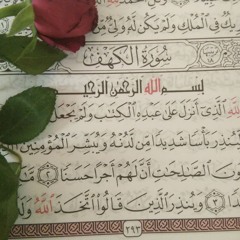 فِي الْمُلْكِ وَلَمْ يَكُن لَّهُ وَلِيٌّ
سُورَةُ الْكَهْفِ
بِسْمِ اللَّهِ الرَّحْمَٰنِ الرَّحِيمِ
لِلَّهِ الَّذِي أَنزَلَ عَلَىٰ عَبْدِهِ الْكِتَابَ وَلَمْ يَجْعَل
بَأْسًا شَدِيدًا مِّن لَّدُنْهُ وَيُبَشِّرَ الْمُؤْمِنِينَ
الصَّالِحَاتِ أَنَّ لَهُمْ أَجْرًا حَسَنًا ٢
٣ وَيُنذِرَ الَّذِينَ قَالُوا اتَّخَذَ اللَّهُ
٢٩٣